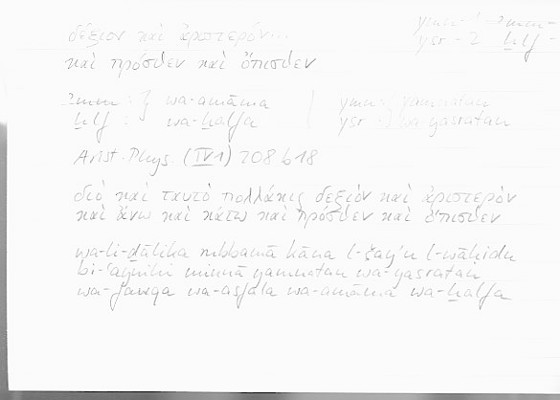 ymn - 1 ʾmm -
ysr - 2 ḫlf -
δεξιὸν καὶ ἀριστερόν...
καὶ πρόσθεν καὶ ὄπισθεν
ʾmm : 3 wa-amāma ymn : yamnatan
ḫlf : wa-ḫalfa ysr : wa-yasratan
Arist. Phys. (IV 1) 208 b 18
διὸ καὶ ταὐτὸ πολλάκις δεξιὸν καὶ ἀριστερὸν
καὶ ἄνω καὶ κάτω καὶ πρόσθεν καὶ ὄπισθεν
wa-li-ḏālika rubbamā kāna l-šayʾu l-wāḥidu
bi-ʿaynihi minnā yamnatan wa-yasratan
wa-fawqa wa-asfala wa-amāma wa-ḫalfa